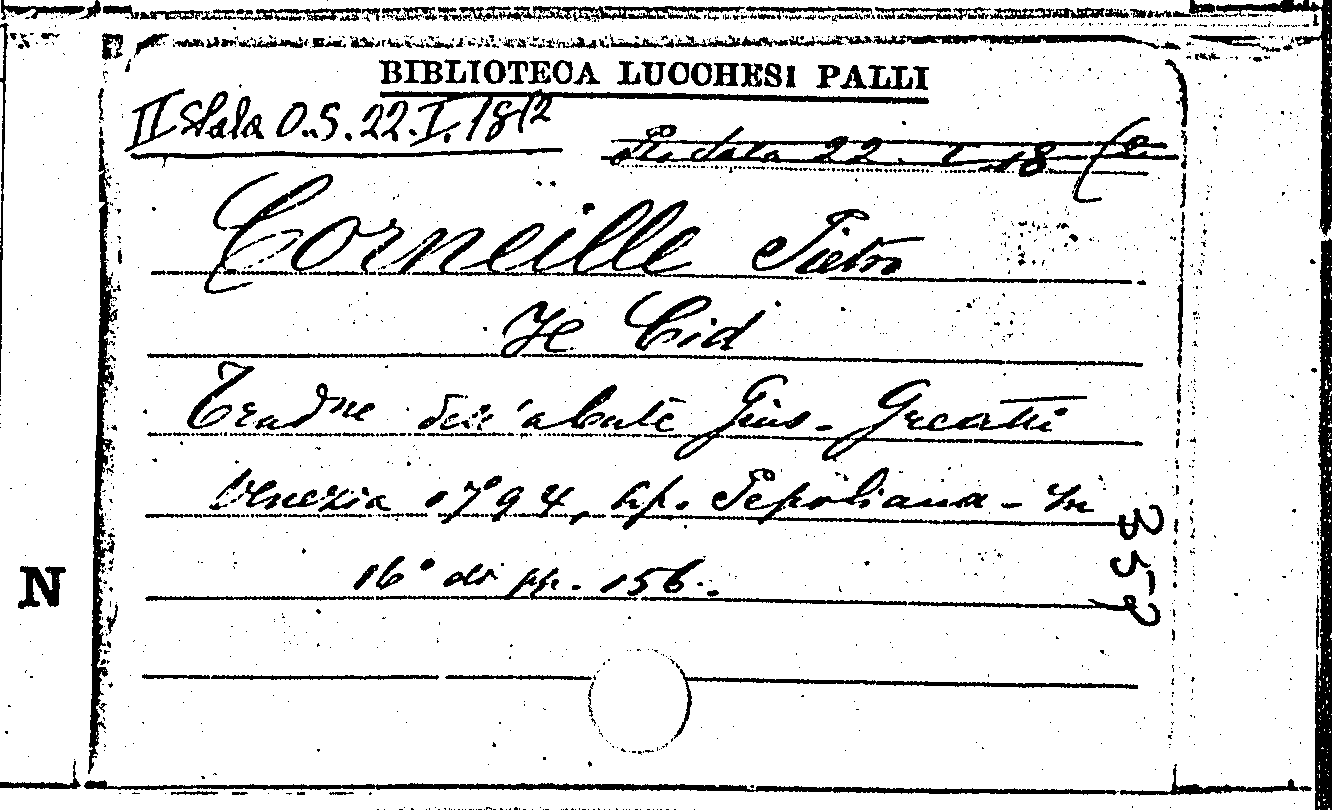 BIBLIOTECA LUCCHESI PALLI
II Sala O.S. 22. I. 18(2
22. I. 18
Corneille Pietro
Il Cid
Traduz dell'abate Gius. Greatti
Venezia 1794, tip. Pepoliana - In
16° di pp. 156.
357
N